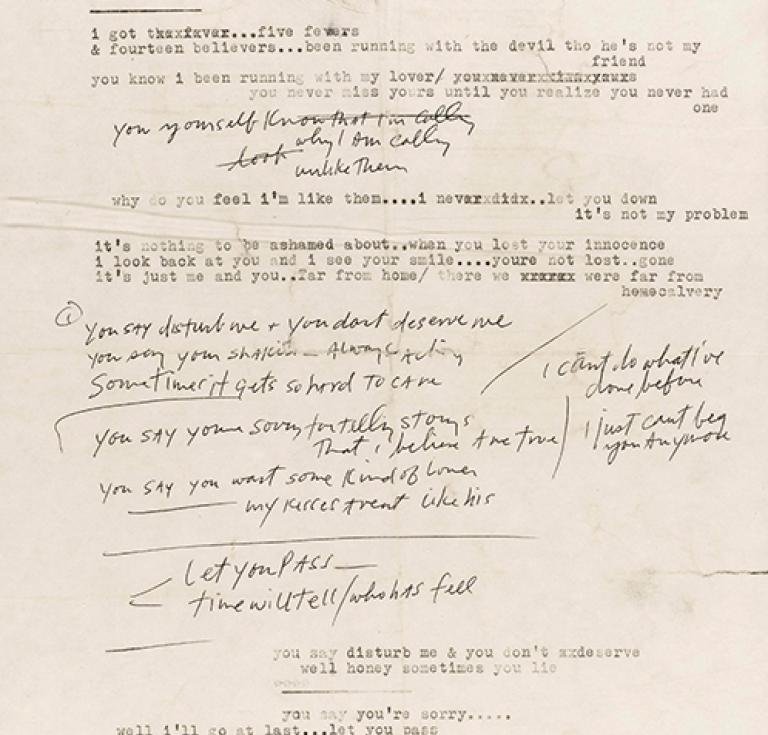 i got tkaxfavar...five fevers
& fourteen believers...been running with the devil tho he's not my
friend
you know i been running with my lover/
you never miss yours until you realize you never had
one
you yourself Know that I'm Calling
Look why I Am Calling
unlike Them
why do you feel i'm like them....i nevarxdidx..let you down
it's not my problem
it's nothing to be ashamed about..when you lost your innocence
i look back at you and i see your smile....youre not lost..gone
it's just me and you..far from home/ there we xxxxxx were far from
homecalvery
① You SAY disturb me + you dont deserve me
You say your shakin — Always Acting
Sometimes it gets so hard to care
I cant do what I've
done before
You SAY youre sorry for telling storys
That i believe Are true
I just cant beg
you Anymore
You SAY you want some Kind of Lover
my Kisses Arent like his
Let you PASS
time will tell/who has fell
you say disturb me & you don't xxdeserve
well honey sometimes you lie
oooo
you say you're sorry.....
well i'll go at last...let you pass